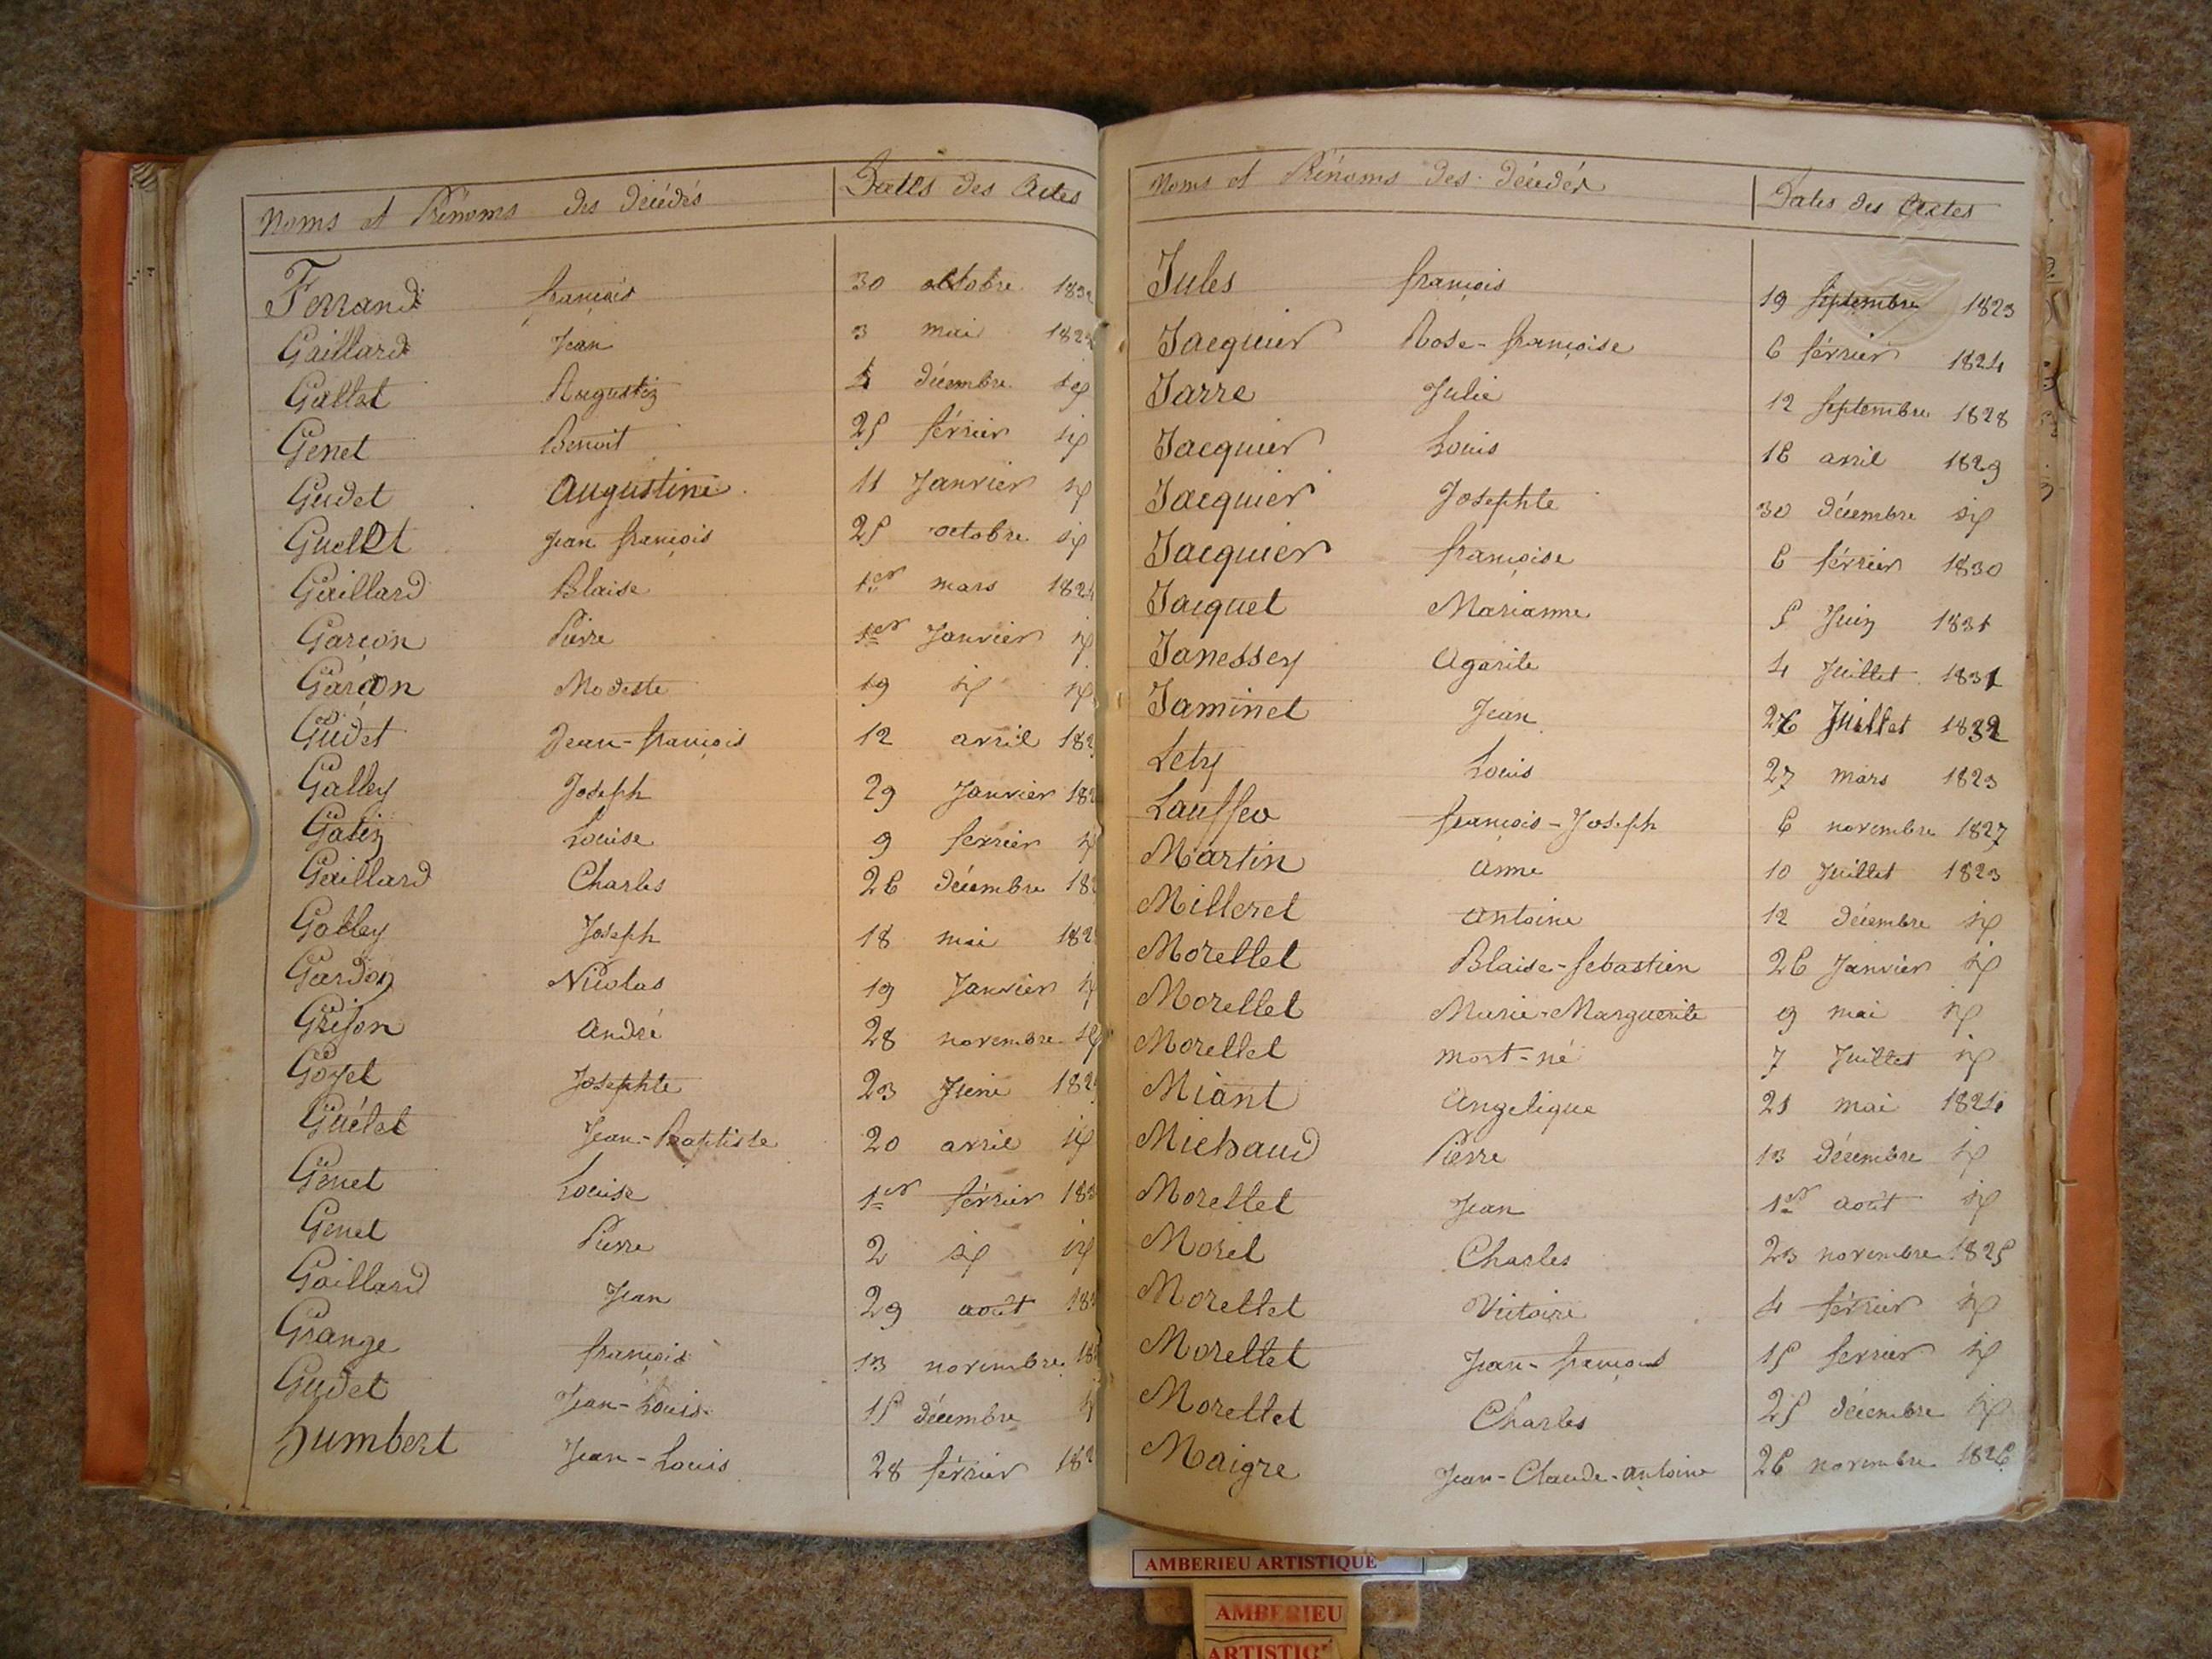 Noms et Prénoms des décédés Dates des Actes
Ferrand françois 30 octobre 183
Gaillard Jean 3 mai 182
Gallet Augustin 4 décembre id
Genet Benoit 25 février id
Gudet Augustine 11 Janvier id
Guellet Jean françois 25 octobre id
Gaillard Blaise 1er mars 1824
Garçon Pierre 1er Janvier id
Garçon Modeste 19 id id
Gudet Jean-françois 12 avril 182
Galley Joseph 29 Janvier 182
Gatin Louise 9 fevrier id
Gaillard Charles 26 décembre 182
Galley Joseph 18 mai 182
Gardon Nicolas 19 Janvier id
Grison André 28 novembre id
Goyet Josephte 23 Juin 182
Guélet Jean-Baptiste 20 avril id
Genet Louise 1er février 183
Genet Pierre 2 id id
Gaillard Jean 29 août 183
Grange françois 13 novembre 18
Gudet Jean-Louis 15 décembre id
humbert Jean-Louis 28 février 182
Noms et Prénoms des décédés Dates des Actes
Jules françois 19 septembre 1823
Jacquier Rose-françoise 6 février 1824
Jarre Julie 12 septembre 1828
Jacquier Louis 16 avril 1829
Jacquier Josephte 30 décembre id
Jacquier françoise 6 février 1830
Jacquet Marianne 5 Juin 1831
Janessey Agarite 4 Juillet 1831
Jaminet Jean 26 Juillet 1832
Lety Louis 27 mars 1823
Lauffer françois-Joseph 6 novembre 1827
Martin Anne 10 Juillet 1823
Milleret Antoine 12 décembre id
Morellet Blaise-Sebastien 26 Janvier id
Morellet Marie-Marguerite 9 mai id
Morellet mort-né 7 Juillet id
Miant Angelique 21 mai 1824
Michaud Pierre 13 décembre id
Morellet Jean 1er août id
Morel Charles 23 novembre 1825
Morellet Victoire 4 février id
Morellet Jean-françois 15 fevrier id
Morellet Charles 25 décembre id
Maigre Jean-Claude-Antoine 26 novembre 1826
AMBERIEU ARTISTIQUE
AMBERIEU
ARTISTIQ